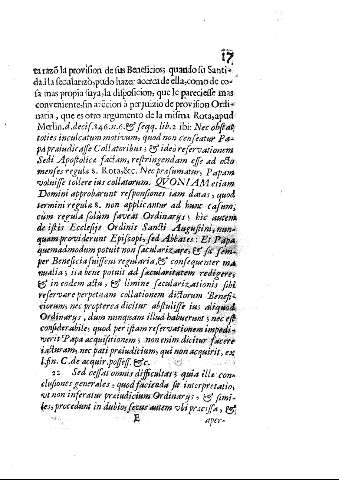 17
ta razõ la provision de sus Beneficios quando su Santi-
dad la secularizò, pudo hazer acerca de ella, como de co-
sa mas propia suya, la disposicion, que le pareciesse mas
conveniente: sin atẽcion à perjuizio de provision Ordi-
naria, que es otro argumento de la misma Rota, apud
Merlin. d. decis. 346. n. 6. & seqq. lib. 2 ibi: Nec obstat
toties inculcatum motivum, quod non censeatur Pa-
pa præiudicasse Collatoribus, & ideò reservationem
Sedi Apostolicæ factam, restringendam esse ad octo
menses regula 8. Rota, &c. Nec præsumatur, Papam
voluisse tollere ius collatorum. QVONIAM etiam
Domini approbarunt responsiones iam datas; quod
termini regula 8. non applicantur ad hunc casum;
cùm regula solùm faveat Ordinarijs; hic autem
de istis Ecclesijs Ordinis Sancti Augustini, nun-
quam providerunt Episcopi, sed Abbates: Et Papa
quemadmodum potuit non sæcularizare, & sic sem-
per Beneficia fuissent regularia, & consequenter ma-
nualia; ita bene potuit ad sæcularitatem redigere;
& in eodem actu, & limine sæcularizationis sibi
reservare perpetuam collationem dictorum Benefi-
ciorum; nec propterea dicitur abstulisse ius aliquod
Ordinarijs, dum nunquam illud habuerunt; nec est
considerabile; quod per istam reservationem impedi-
verit Papa acquisitionem; non enim dicitur facere
iacturam, nec pati præiudicium, qui non acquirit, ex
l. fin. C. de acquir. possess. &c.
22 Sed cessat omnis difficultas; quia illæ con-
clusiones generales; quod facienda sit interpretatio,
ut non inferatur præiudicium Ordinarijs, & simi-
les; procedunt in dubio; secus autem vbi præcissa, &
E aper-